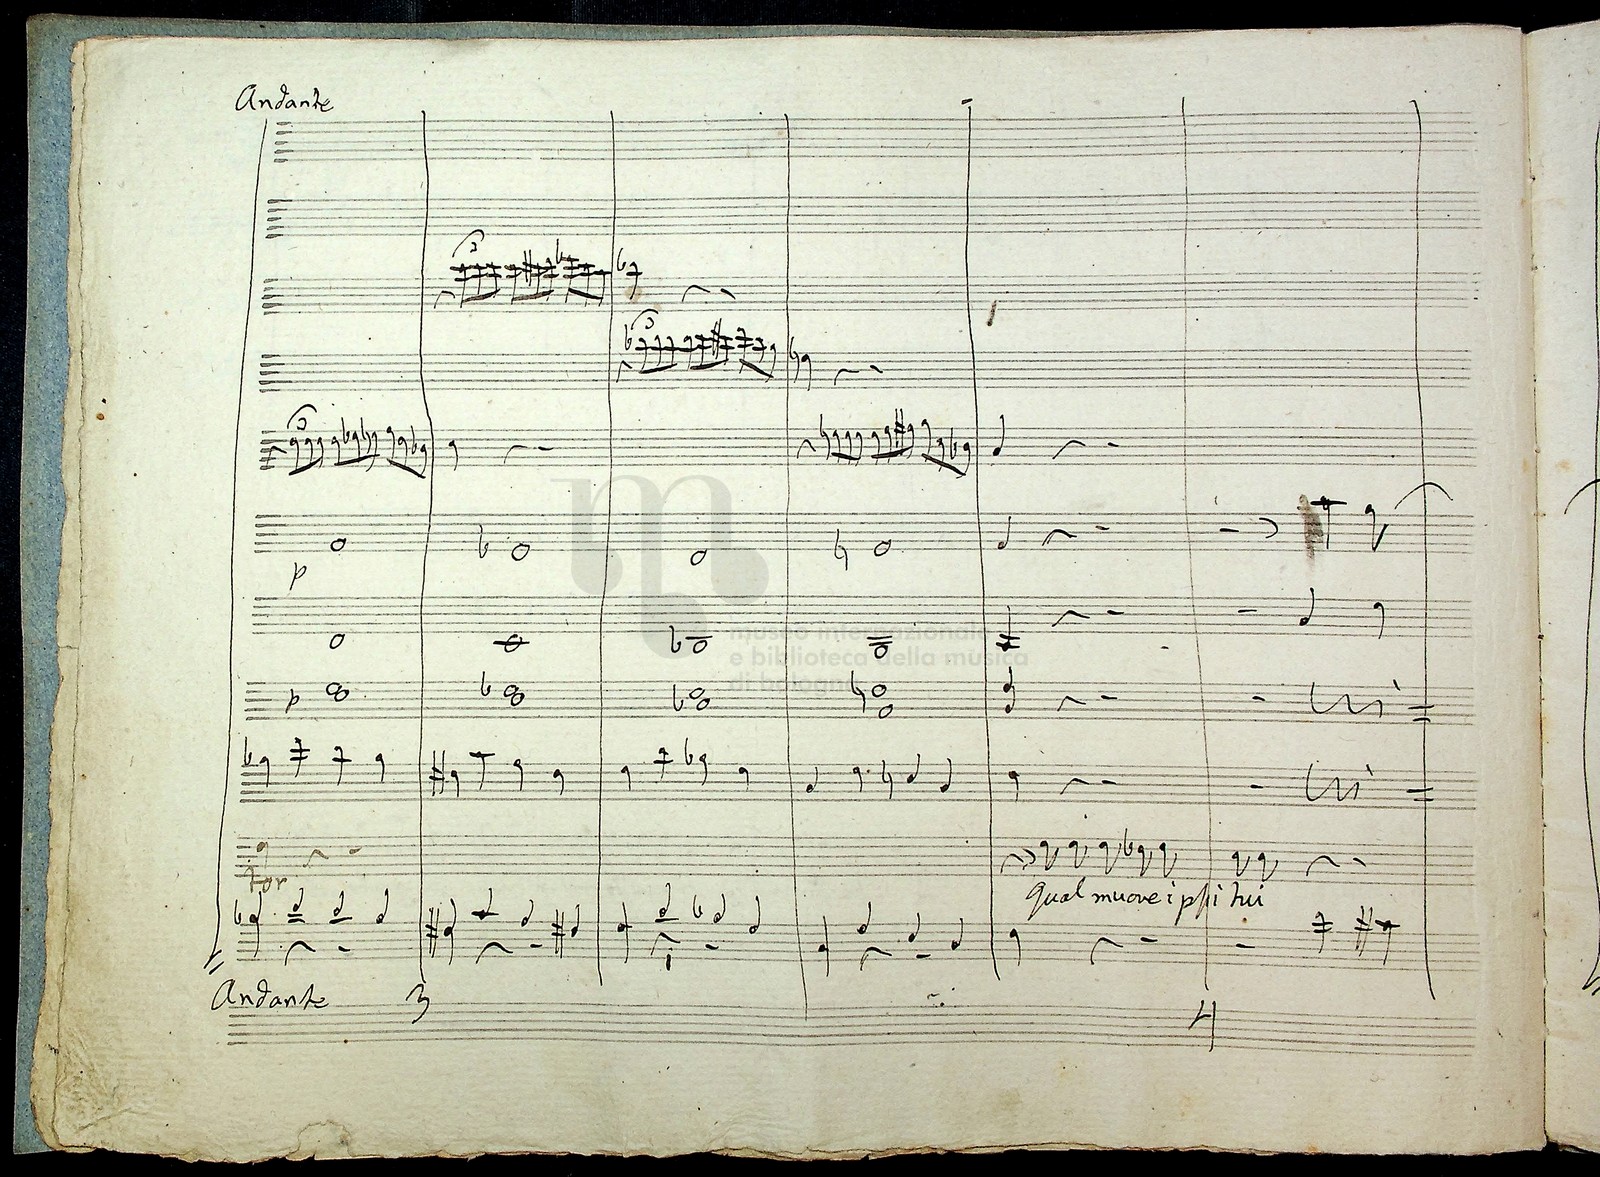 Andante
3
3
p
museo internazionale
e biblioteca della musica
di bologna
p
for
Qual muove i passi tui
Andante
3
4